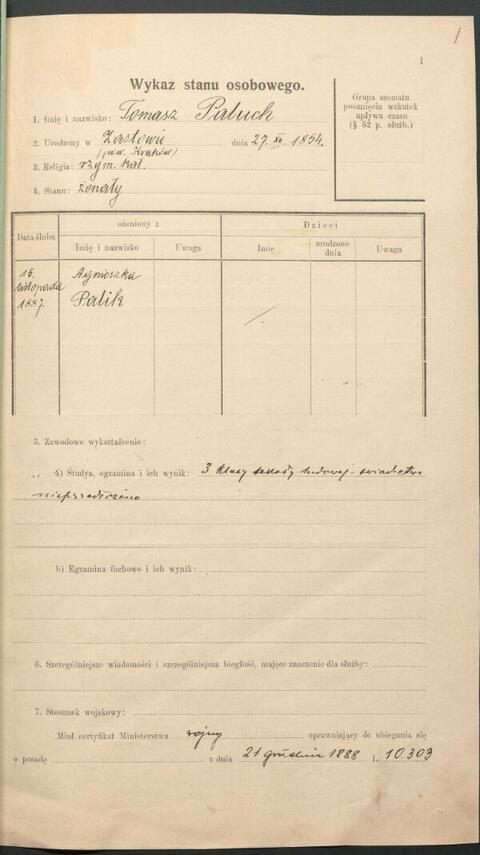 1
1
Wykaz stanu osobowego.
Grupa szematu
posunięcia wskutek
upływu czasu
(§ 52 p. służb.)
1. Imię i nazwisko: Tomasz Paluch
2. Urodzony w Zastowie dnia 27. XII. 1854.
(pow. Kraków)
3. Religia: rzym. kat.
4. Stanu: żonaty
Data ślubu
ożeniony z
Dzieci
Imię i nazwisko
Uwaga
Imię
urodzone
dnia
Uwaga
15.
listopada
1887.
Agnieszka
Palik
5. Zawodowe wykształcenie:
a) Studya, egzamina i ich wynik: 3 klasy szkoły ludowej - świadectwa
nieprzedłożono
b) Egzamina fachowe i ich wynik:
6. Szczególniejsze wiadomości i szczególniejsza biegłość, mające znaczenie dla służby:
7. Stosunek wojskowy:
Miał certyfikat Ministerstwa wojny uprawniający do ubiegania się
o posadę z dnia 21 grudnia 1888 l. 10.303